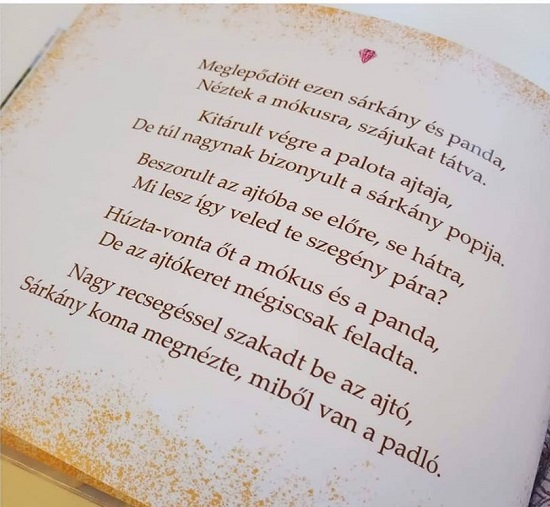 Meglepődött ezen sárkány és panda,
Néztek a mókusra, szájukat tátva.
Kitárult végre a palota ajtaja,
De túl nagynak bizonyult a sárkány popija.
Beszorult az ajtóba se előre, se hátra,
Mi lesz így veled te szegény pára?
Húzta-vonta őt a mókus és a panda,
De az ajtókeret mégiscsak feladta.
Nagy recsegéssel szakadt be az ajtó,
Sárkány koma megnézte, miből van a padló.